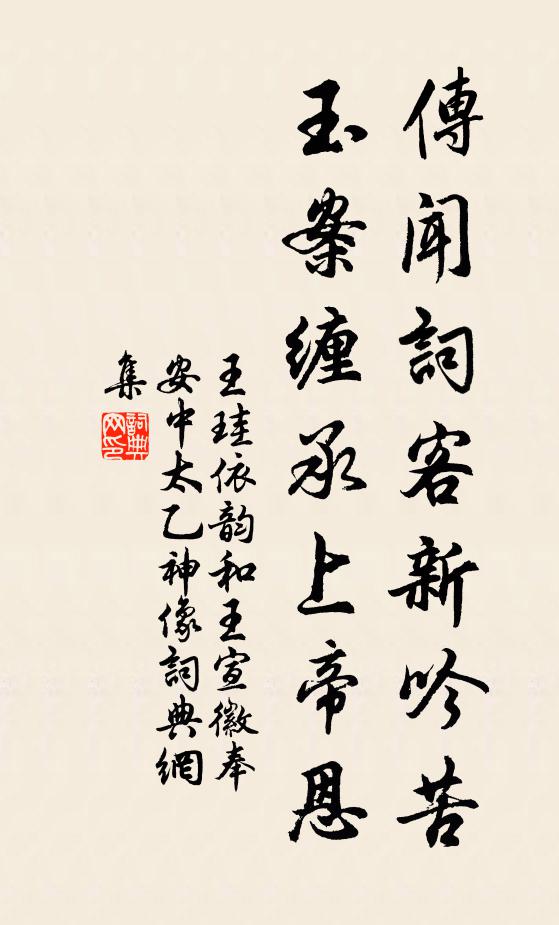 傳聞詞客新吟苦
玉案纏承上帝恩
王珪依韵和王宣徽奉
安中太乙神像詞典網
集
詞典
网印